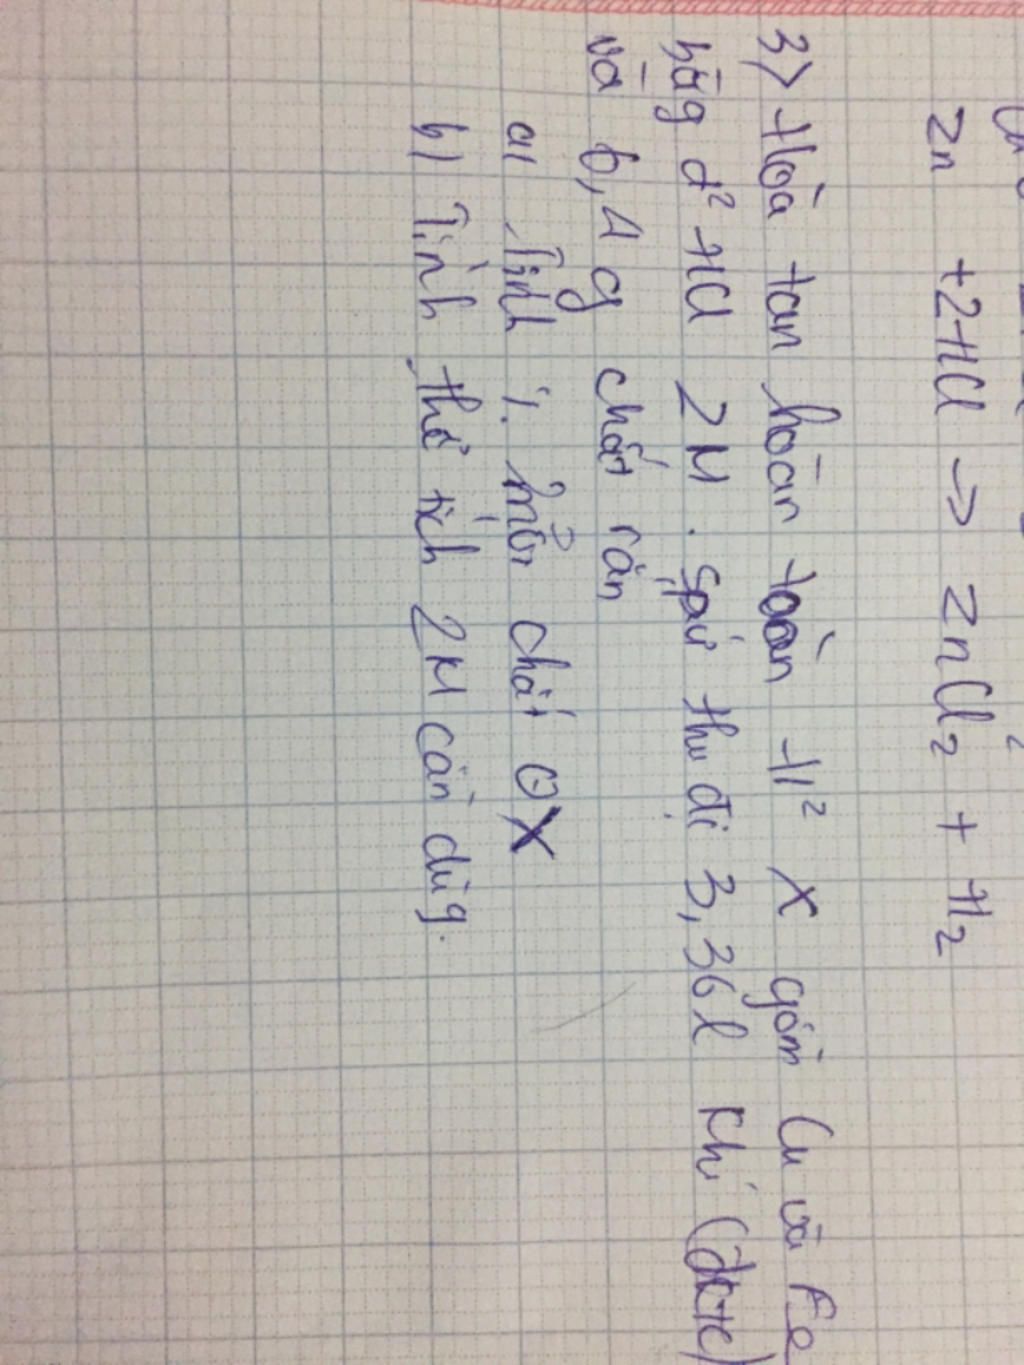 Zn + 2HCl → ZnCl₂ + H₂
3> Hòa tan hoàn toàn H² X gồm Cu và Fe
bằg d² HCl 2M. Sau thu đị 3,36 l khí (đktc)
và 6,4 g chất rắn
a) Tính % mỗi chất O X
b) Tính thể tích 2M cần dùg.